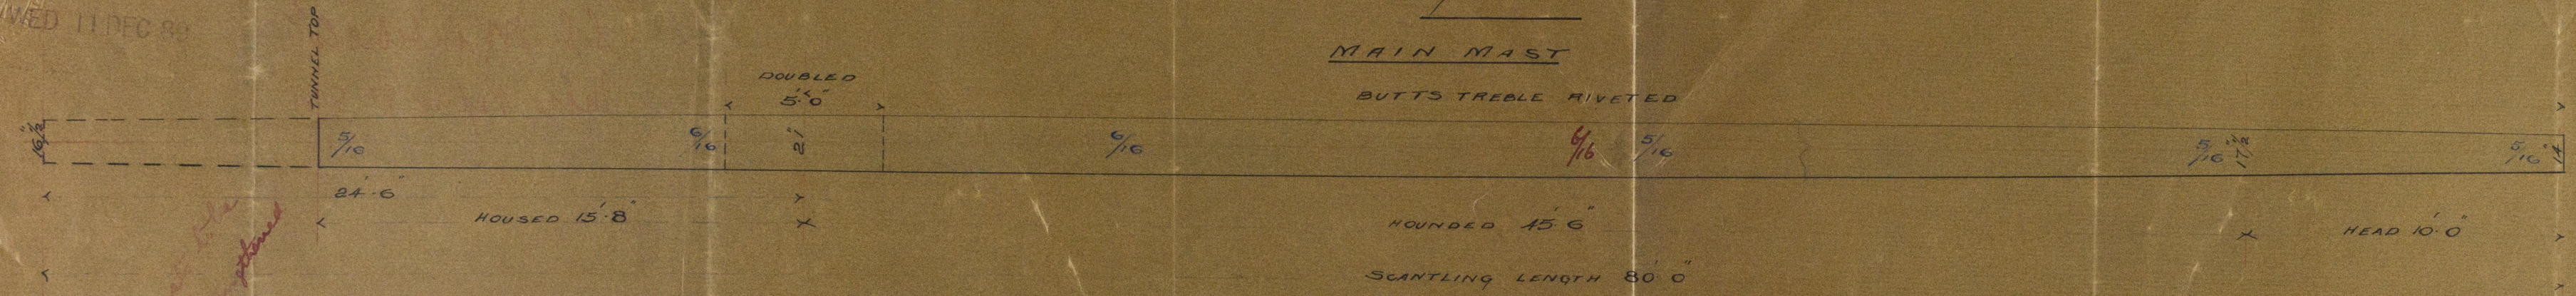 WED 11 DEC 89
TUNNEL TOP
MAIN MAST
BUTTS TREBLE RIVETED
DOUBLED
5'·0"
16½"
5/16
6/16
21"
6/16
6/16
5/16
5/16
17½"
5/16
14"
24'·6"
HOUSED 15'·8"
HOUNDED 45'·6"
HEAD 10'·0"
SCANTLING LENGTH 80'·0"